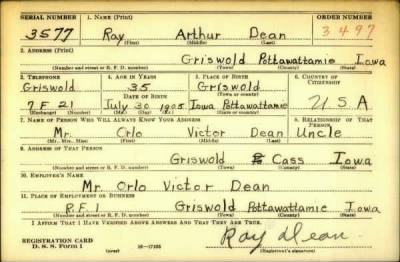 SERIAL NUMBER 1. NAME (Print) ORDER NUMBER
3577 Ray Arthur Dean 3497
(First) (Middle) (Last)
2. ADDRESS (Print)
Griswold Pottawattamie Iowa
(Number and street or R. F. D. number) (Town) (County) (State)
3. TELEPHONE 4. AGE IN YEARS 5. PLACE OF BIRTH 6. COUNTRY OF CITIZENSHIP
Griswold 35 Griswold
DATE OF BIRTH (Town) U S A
7 F 21 July 30 1905 Iowa Pottawattamie
(Exchange) (Number) (Mo.) (Day) (Yr.) (State or country)
7. NAME OF PERSON WHO WILL ALWAYS KNOW YOUR ADDRESS 8. RELATIONSHIP OF THAT PERSON
Mr. Orlo Victor Dean Uncle
(Mr., Mrs., Miss) (First) (Middle) (Last)
9. ADDRESS OF THAT PERSON
Griswold Cass Iowa
(Number and street or R. F. D. number) (Town) (County) (State)
10. EMPLOYER'S NAME
Mr. Orlo Victor Dean
11. PLACE OF EMPLOYMENT OR BUSINESS
R.F. 1 Griswold Pottawattamie Iowa
(Number and street or R. F. D. number) (Town) (County) (State)
I AFFIRM THAT I HAVE VERIFIED ABOVE ANSWERS AND THAT THEY ARE TRUE.
REGISTRATION CARD Ray Dean
D. S. S. Form 1 (over) 16-17105 (Registrant's signature)